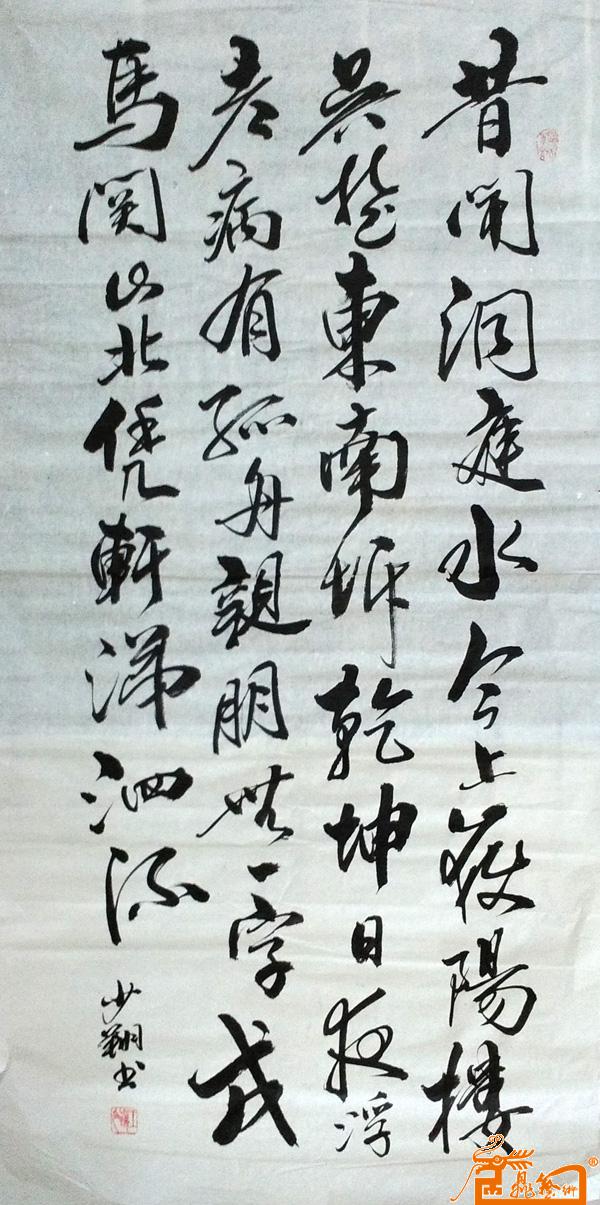 昔聞洞庭水今上嶽陽樓
吳楚東南坼乾坤日夜浮
老病有孤舟親朋無一字戎
馬関山北凭軒涕泗流
少翔書